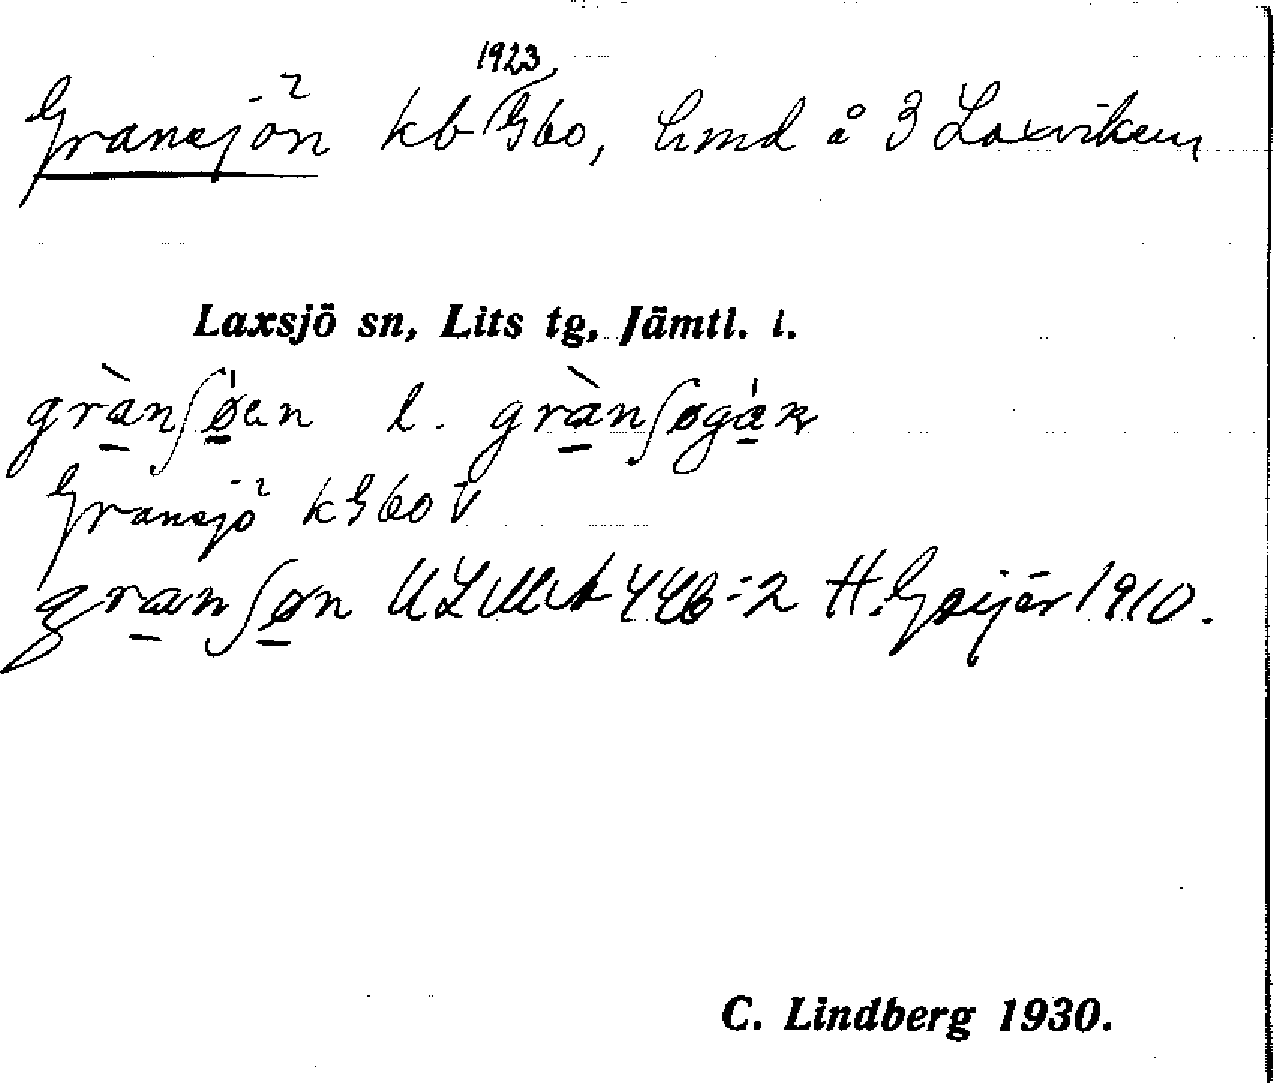 Gransjön kb 1923 G60, hmd å 3 Laxviken
Laxsjö sn, Lits tg, Jämtl. l.
grànʃǿan l. grànʃøgáʀ
Gransjö k G60 v
granʃøn ULMA 44b:2 H. Geijer 1910.
C. Lindberg 1930.